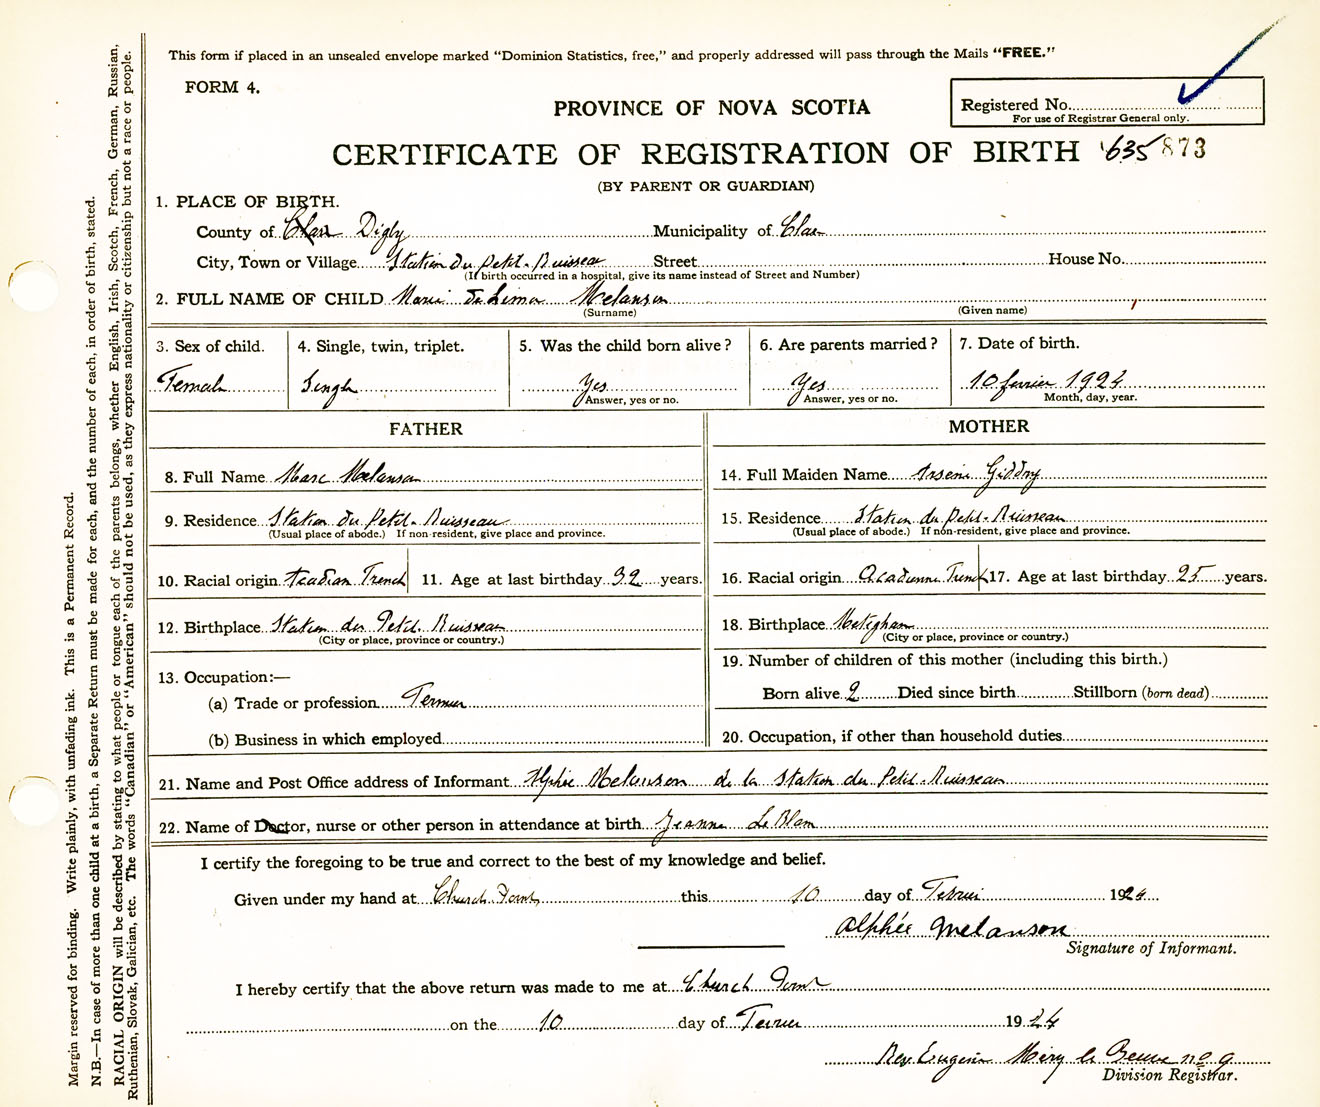 This form if placed in an unsealed envelope marked “Dominion Statistics, free,” and properly addressed will pass through the Mails “FREE.”
FORM 4.
PROVINCE OF NOVA SCOTIA
Registered No.
For use of Registrar General only.
CERTIFICATE OF REGISTRATION OF BIRTH 635 873
(BY PARENT OR GUARDIAN)
1. PLACE OF BIRTH.
County of Clare Digby Municipality of Clare
City, Town or Village Station du Petit-Ruisseau Street House No.
(If birth occurred in a hospital, give its name instead of Street and Number)
2. FULL NAME OF CHILD Marie Melanson
(Surname) (Given name)
3. Sex of child. 4. Single, twin, triplet. 5. Was the child born alive? 6. Are parents married? 7. Date of birth.
Female Single Yes Yes 10 1924
Answer, yes or no. Answer, yes or no. Month, day, year.
FATHER MOTHER
8. Full Name Marc Melanson 14. Full Maiden Name
9. Residence Station du Petit-Ruisseau 15. Residence Station du Petit-Ruisseau
(Usual place of abode.) If non-resident, give place and province. (Usual place of abode.) If non-resident, give place and province.
10. Racial origin Acadian French 11. Age at last birthday 32 years. 16. Racial origin French 17. Age at last birthday 25 years.
12. Birthplace Station du Petit Ruisseau 18. Birthplace Meteghan
(City or place, province or country.) (City or place, province or country.)
19. Number of children of this mother (including this birth.)
13. Occupation:—
(a) Trade or profession Born alive 2 Died since birth Stillborn (born dead)
(b) Business in which employed 20. Occupation, if other than household duties
21. Name and Post Office address of Informant Alphée Melanson de la Station du Petit-Ruisseau
22. Name of Doctor, nurse or other person in attendance at birth Jeanne Le Blanc
I certify the foregoing to be true and correct to the best of my knowledge and belief.
Given under my hand at Church Point this 10 day of 1924
Alphée Melanson
Signature of Informant.
I hereby certify that the above return was made to me at Church Point
on the 10 day of 1924
Rev Eugène no 9
Division Registrar.
Margin reserved for binding. Write plainly, with unfading ink. This is a Permanent Record.
N.B.—In case of more than one child at a birth, a Separate Return must be made for each, and the number of each, in order of birth, stated.
RACIAL ORIGIN will be described by stating to what people or tongue each of the parents belongs, whether English, Irish, Scotch, French, German, Russian,
Ruthenian, Slovak, Galician, etc. The words “Canadian” or “American” should not be used, as they express nationality or citizenship but not a race or people.